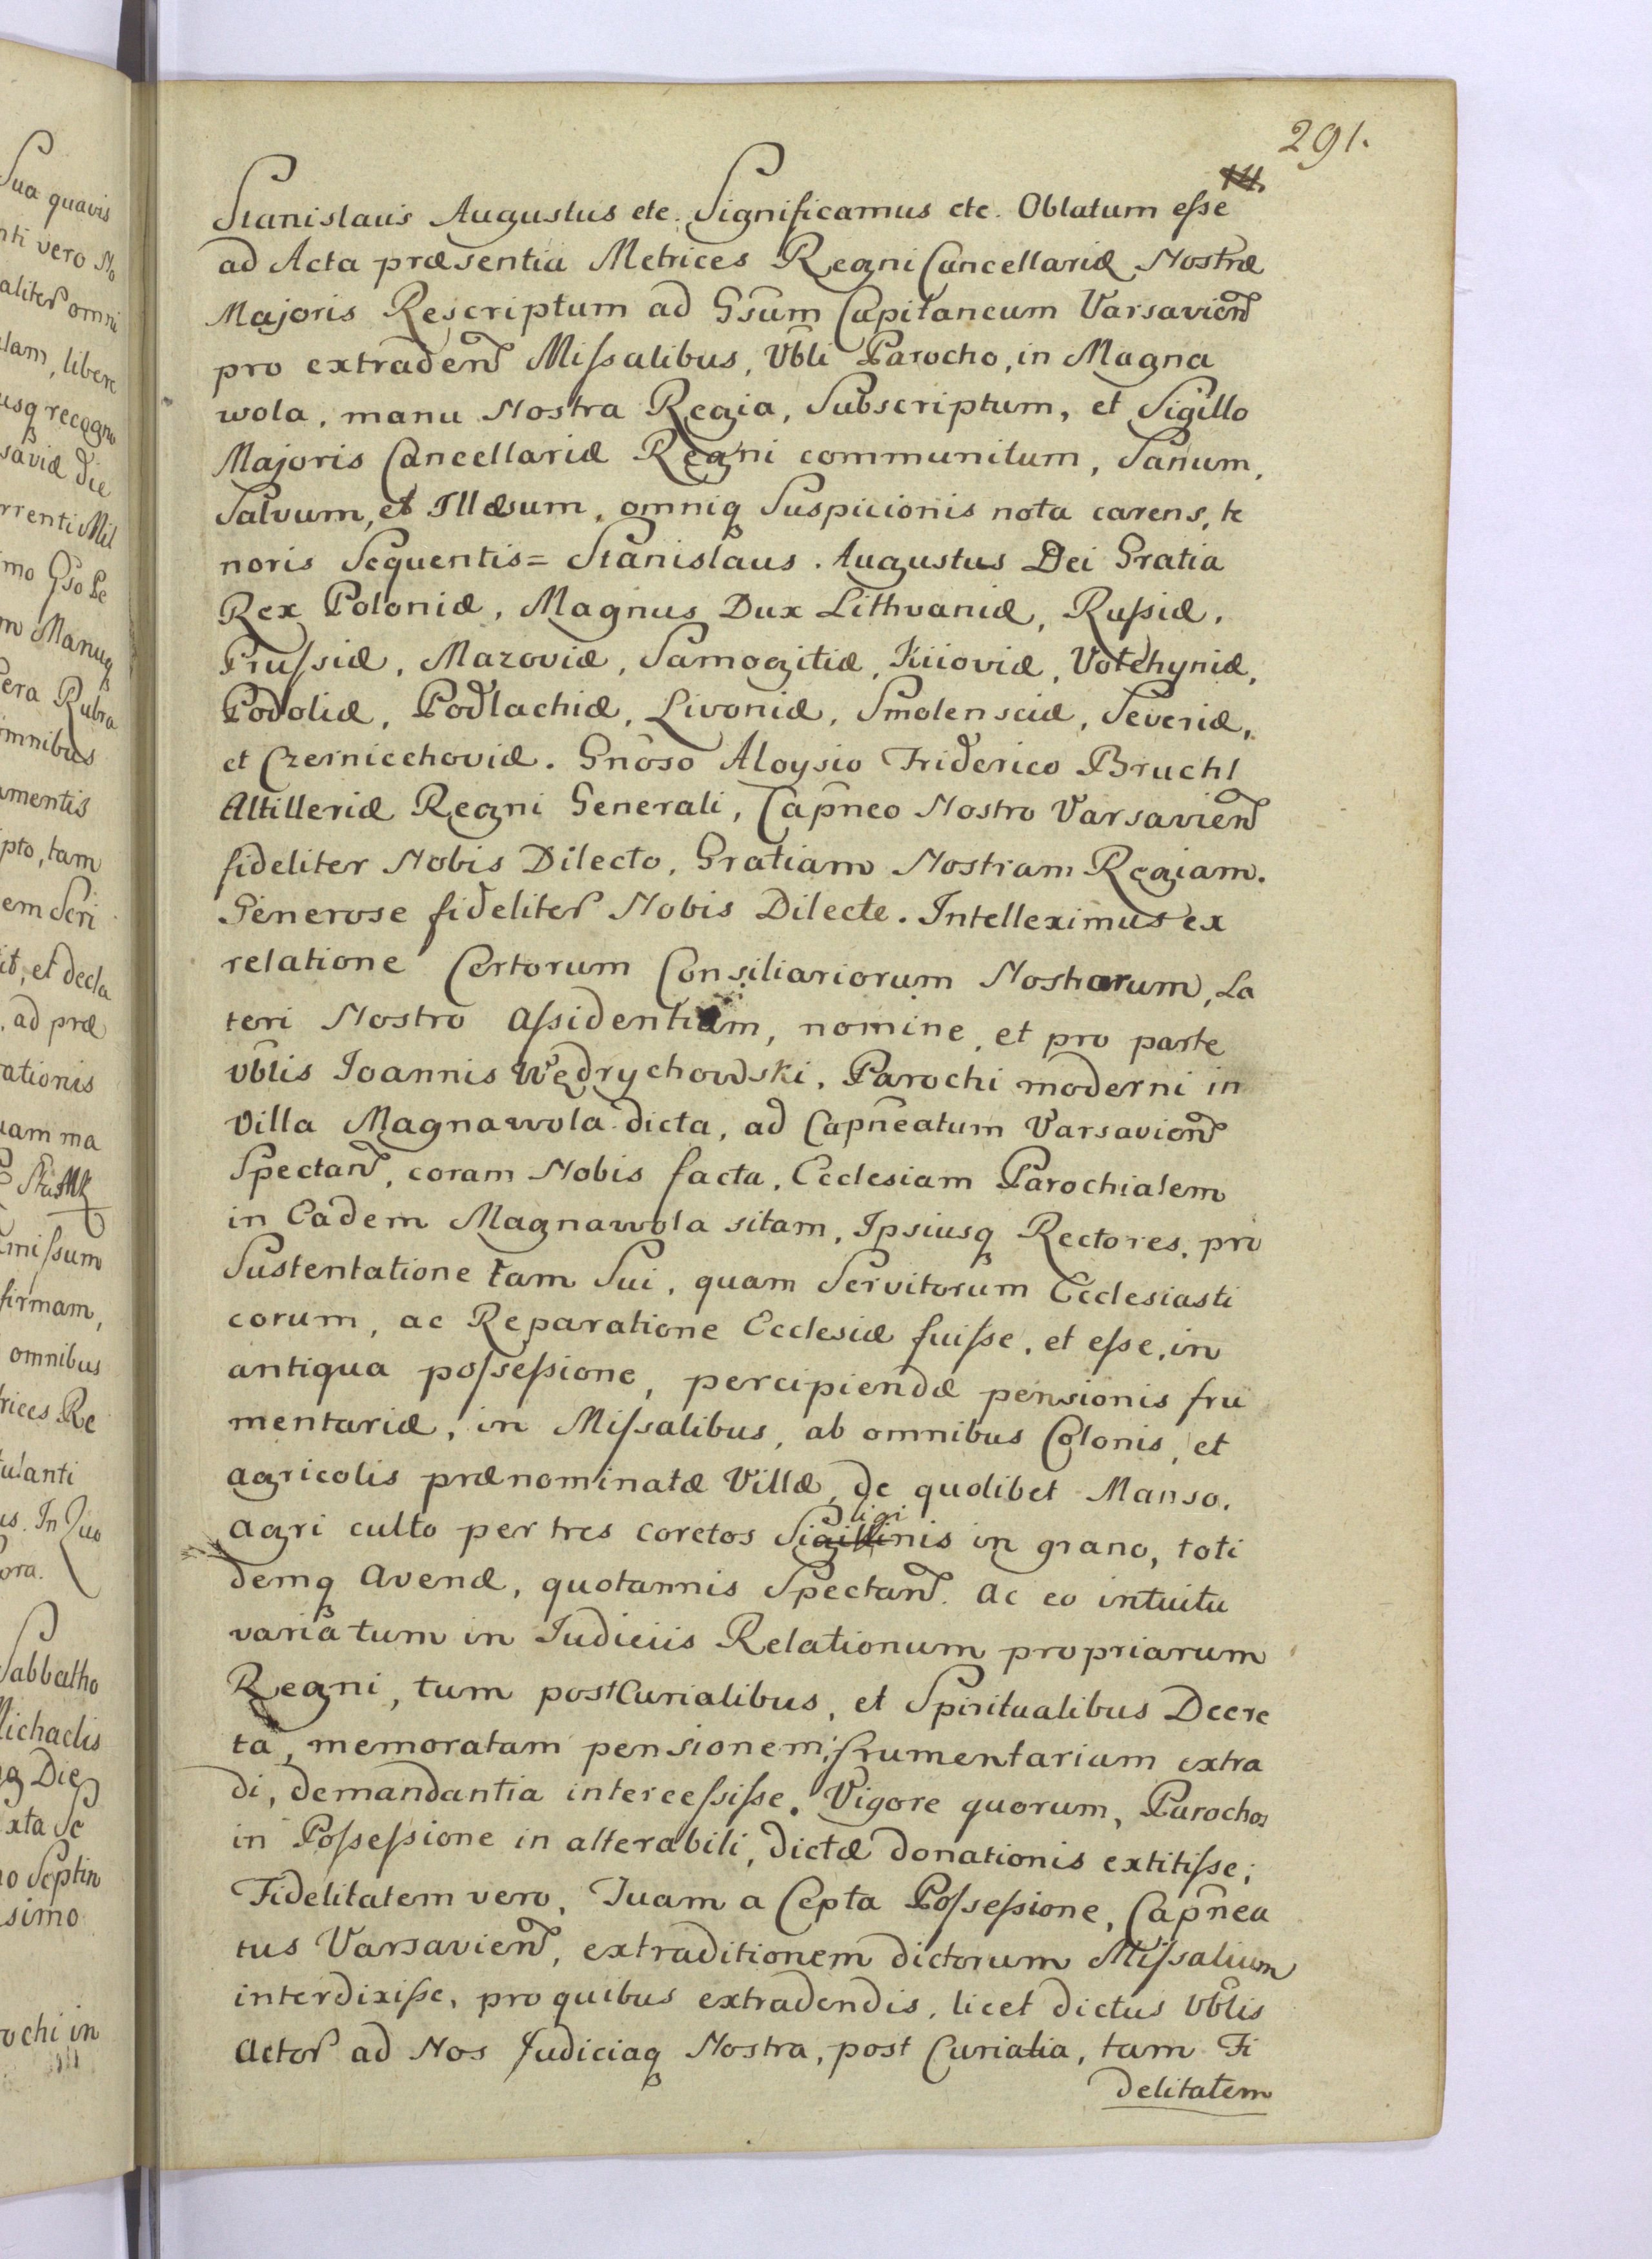 291.
Stanislaus Augustus etc. Significamus etc. Oblatum esse
ad Acta præsentia Metrices Regni Cancellariæ Nostræ
Majoris Rescriptum ad Gsum Capitaneum Varsavien̄
pro extraden̄ Missalibus, Vbli Parocho, in Magna
wola, manu Nostra Regia, Subscriptum, et Sigillo
Majoris Cancellariæ Regni communitum, Sanum,
Salvum, et Illæsum, omniq Suspicionis nota carens, te
noris Sequentis= Stanislaus Augustus Dei Gratia
Rex Poloniæ, Magnus Dux Lithvaniæ, Russiæ,
Prussiæ, Mazoviæ, Samogitiæ, Kiioviæ, Volchyniæ,
Podoliæ, Podlachiæ, Livoniæ, Smolensciæ, Severiæ,
et Czerniechoviæ. Gnoso Aloysio Friderico Bruchl
Altilleriæ Regni Generali, Capneo Nostro Varsavien̄
fideliter Nobis Dilecto, Gratiam Nostram Regiam.
Generose fideliter Nobis Dilecte. Intelleximus ex
relatione Certorum Consiliariorum Nostrorum, La
teri Nostro assidentium, nomine, et pro parte
vblis Joannis Wędrychowski, Parochi moderni in
Villa Magnawola dicta, ad Capneatum Varsavien̄
Spectan̄, coram Nobis facta, Ecclesiam Parochialem
in Eadem Magnawola sitam, Ipsiusq Rectores, pro
Sustentatione tam Sui, quam Servitorum Ecclesiasti
corum, ac Reparatione Ecclesiæ fuisse, et esse, in
antiqua possessione, percipiendæ pensionis fru
mentariæ, in Missalibus, ab omnibus Colonis, et
agricolis prænominatæ Villæ, de quolibet Manso,
ligi
agri culto per tres coretos Sigillinis in grano, toti
demq avenæ, quotannis Spectan̄. ac eo intuitu
varia tum in Iudiciis Relationum propriarum
Regni, tum postCurialibus, et Spiritualibus Decre
ta, memoratam pensionem frumentariam extra
di, demandantia intercessisse. Vigore quorum, Parochos
in Possessione in alterabili, dictæ donationis extitisse;
Fidelitatem vero, Tuam a Cepta Possessione, Capnea
tus Varsavien̄, extraditionem dictorum Missalium
interdixisse, pro quibus extradendis, licet dictus Vblis
Actor ad Nos Judiciaq Nostra, post Curialia, tam Fi
delitatem